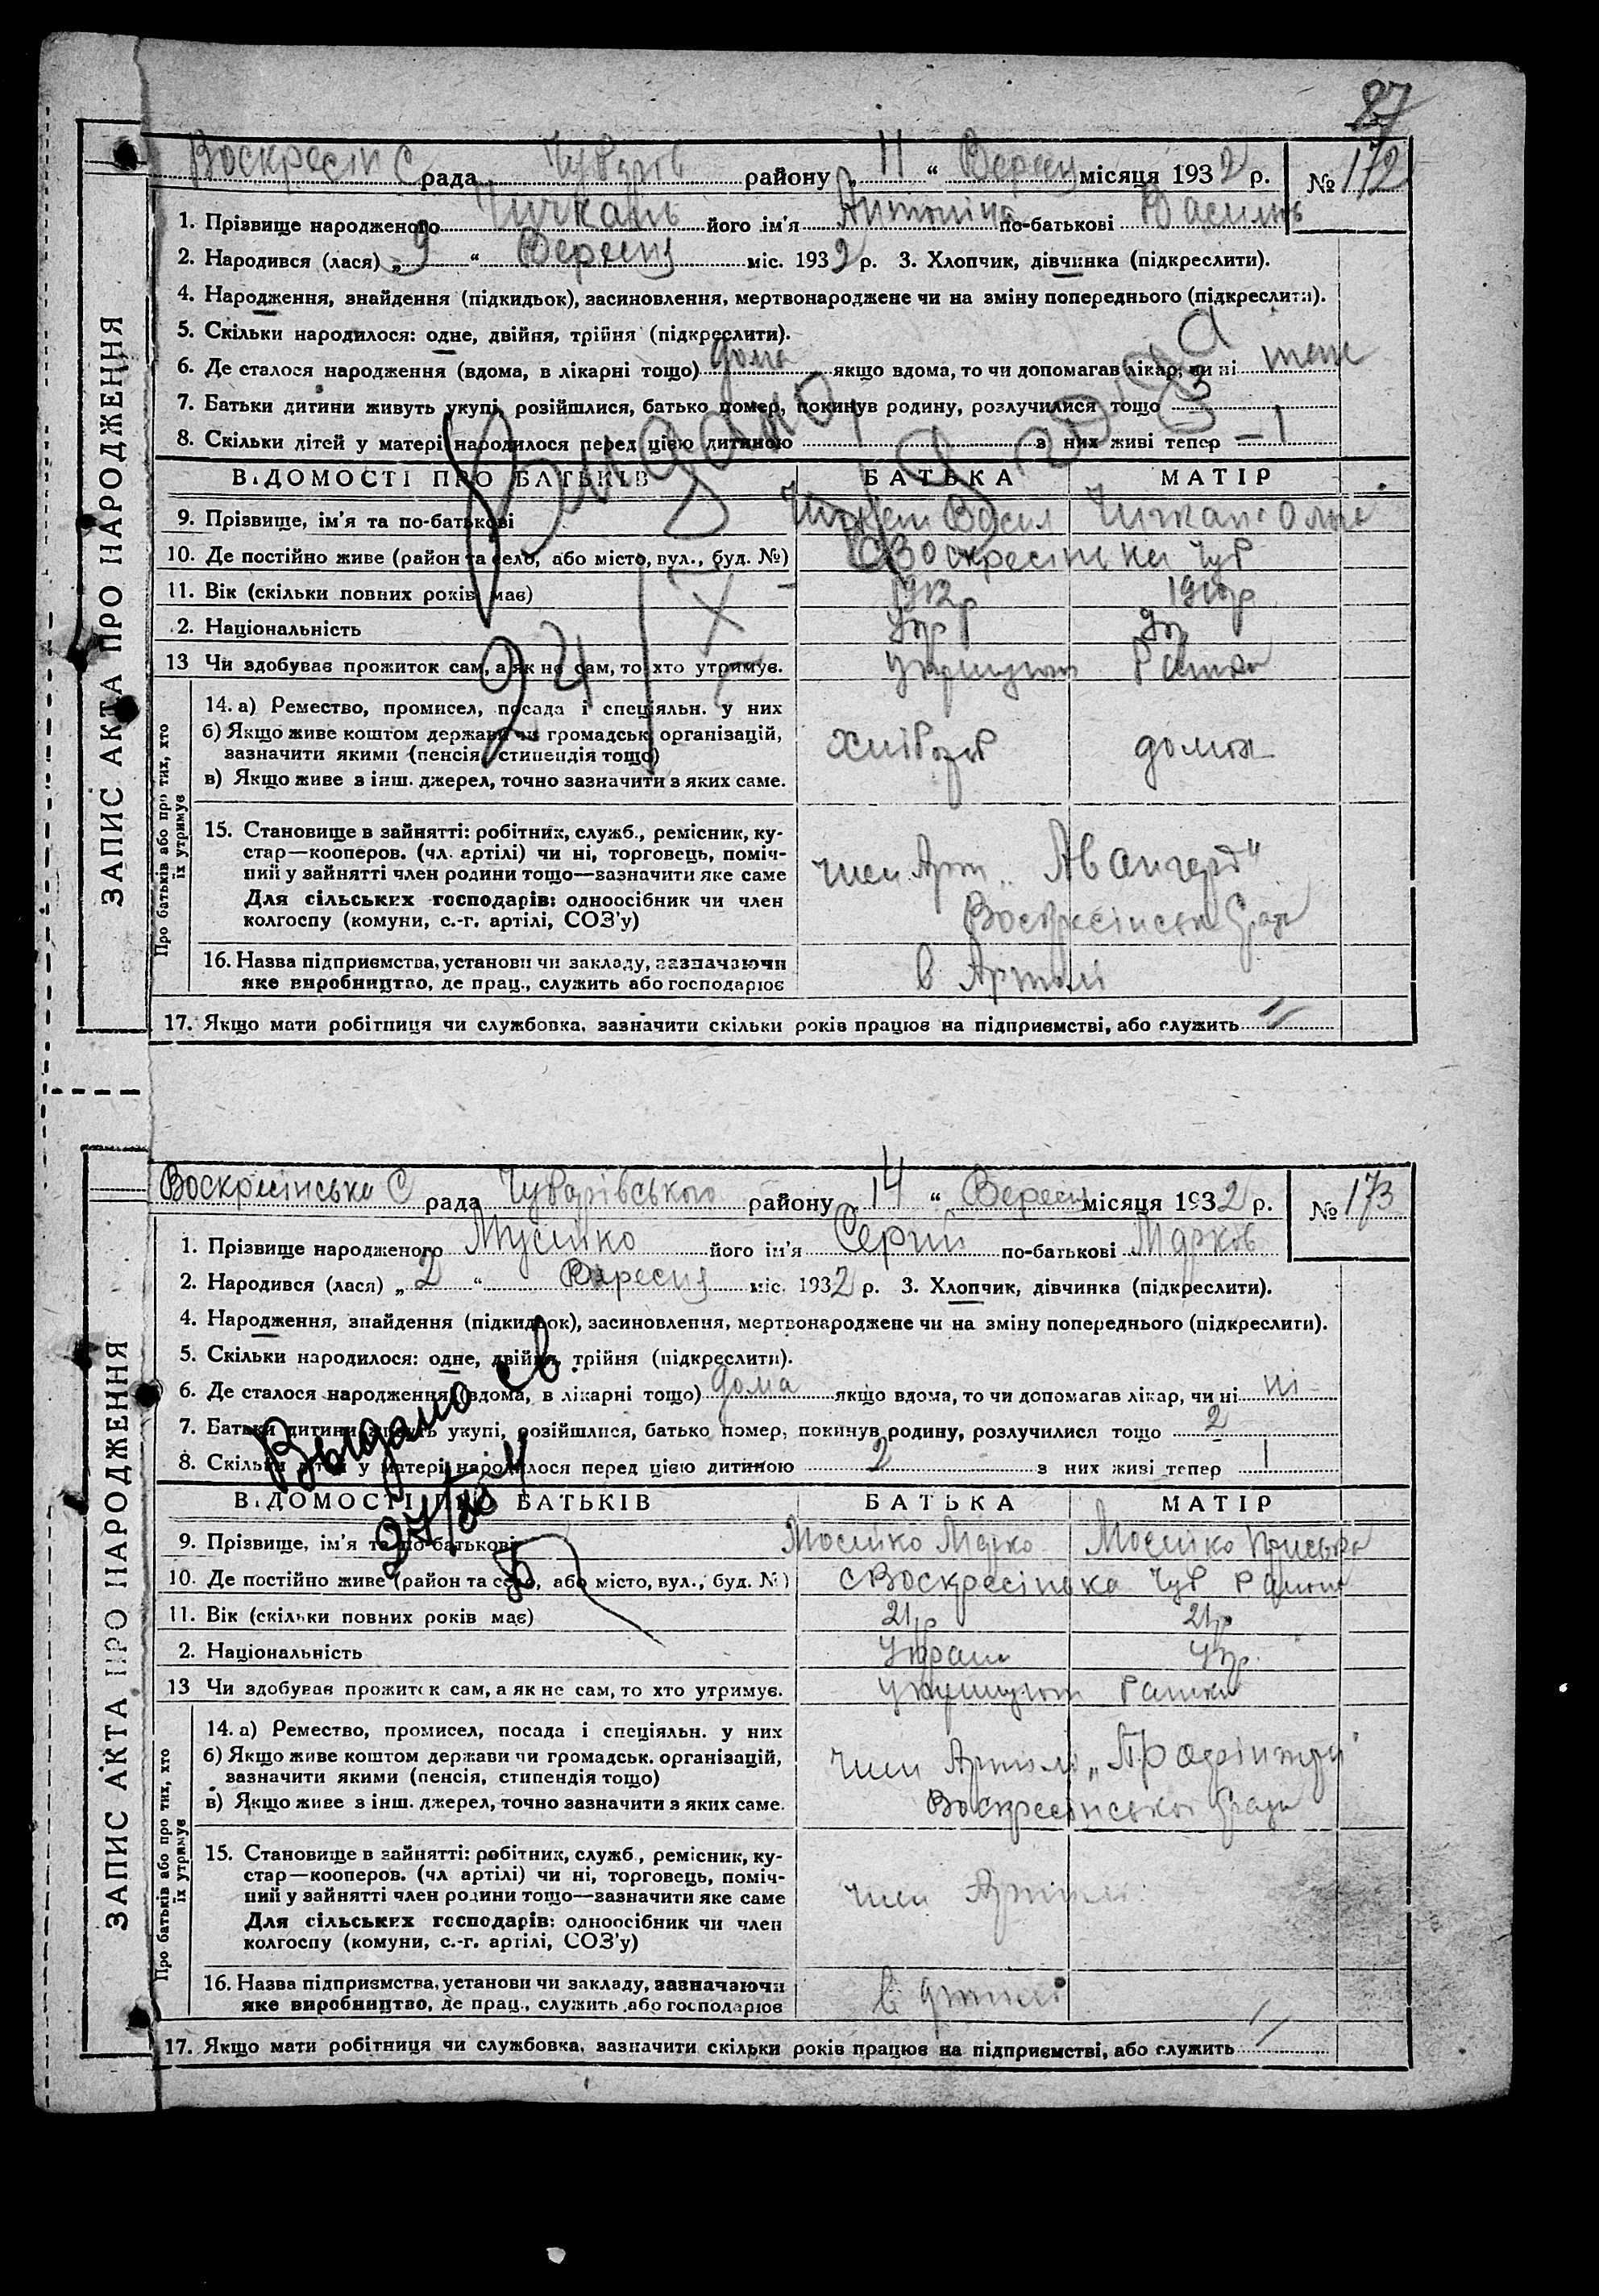 27
Воскресін С рада Чубарів району „ 11 “ Вересн місяця 1932 р. № 172
1. Прізвище народженого Чичкань його ім'я Антоніна по-батькові Василів
2. Народився (лася) „ 9 “ Вересня міс. 1932 р. 3. Хлопчик, дівчинка (підкреслити).
4. Народження, знайдення (підкидьок), засиновлення, мертвонароджене чи на зміну попереднього (підкреслити).
5. Скільки народилося: одне, двійня, трійня (підкреслити).
6. Де сталося народження (вдома, в лікарні тощо) дома якщо вдома, то чи допомагав лікар, чи ні
7. Батьки дитини живуть укупі, розійшлися, батько помер, покинув родину, розлучилися тощо
8. Скільки дітей у матері народилося перед цією дитиною з них живі тепер – 1
Видано
24/IX
ВІДОМОСТІ ПРО БАТЬКІВ БАТЬКА МАТІР
9. Прізвище, ім'я та по-батькові Васил Чичкань Ольга
10. Де постійно живе (район та село, або місто, вул., буд. №) с Воскресінська Чуб
11. Вік (скільки повних років має) 1912р 1910р
2. Національність Укр Укр
13 Чи здобував прожиток сам, а як не сам, то хто утримує.
14. а) Ремество, промисел, посада і спеціяльн. у них
б) Якщо живе коштом держави чи громадськ. організацій,
зазначити якими (пенсія, стипендія тощо) хлібороб домох
в) Якщо живе з інш. джерел, точно зазначити з яких саме.
15. Становище в зайнятті: робітник, служб., ремісник, ку-
стар—кооперов. (чл. артілі) чи ні, торговець, поміч-
ний у зайнятті член родини тощо—зазначити яке саме член Арт „Авангард“
Для сільських господарів: одноосібник чи член
колгоспу (комуни, с.-г. артілі, СОЗ'у) Воскресінська Срада
16. Назва підприємства, установи чи закладу, зазначаючи
яке виробництво, де прац., служить або господарює в Артілі
17. Якщо мати робітниця чи службовка, зазначити скільки років працює на підприємстві, або служить
ЗАПИС АКТА ПРО НАРОДЖЕННЯ
Про батьків або про тих, хто
їх утримує
Воскресінська С рада Чубарівського району 14 “ Вересн місяця 1932 р. № 173
1. Прізвище народженого Мусійко його ім'я Сергій по-батькові Марків
2. Народився (лася) „ 2 “ Вересня міс. 1932 р. 3. Хлопчик, дівчинка (підкреслити).
4. Народження, знайдення (підкидьок), засиновлення, мертвонароджене чи на зміну попереднього (підкреслити).
5. Скільки народилося: одне, двійня, трійня (підкреслити).
6. Де сталося народження (вдома, в лікарні тощо) дома якщо вдома, то чи допомагав лікар, чи ні ні
7. Батьки дитини живуть укупі, розійшлися, батько помер, покинув родину, розлучилися тощо 2
8. Скільки дітей у матері народилося перед цією дитиною 2 з них живі тепер 1
Выдано св.
ВІДОМОСТІ ПРО БАТЬКІВ БАТЬКА МАТІР
9. Прізвище, ім'я та по-батькові Мосийко Марко Мосийко Приська
10. Де постійно живе (район та село, або місто, вул., буд. №) с Воскресінська Чуб району
11. Вік (скільки повних років має) 21р 21р
2. Національність Україн Укр.
13 Чи здобував прожиток сам, а як не сам, то хто утримує.
14. а) Ремество, промисел, посада і спеціяльн. у них
б) Якщо живе коштом держави чи громадськ. організацій,
зазначити якими (пенсія, стипендія тощо) член Артілі „Профінтерн“
в) Якщо живе з інш. джерел, точно зазначити з яких саме. Воскресінської Сради
15. Становище в зайнятті: робітник, служб., ремісник, ку-
стар—кооперов. (чл артілі) чи ні, торговець, поміч-
ний у зайнятті член родини тощо—зазначити яке саме член Артілі
Для сільських господарів: одноосібник чи член
колгоспу (комуни, с.-г. артілі, СОЗ'у)
16. Назва підприємства, установи чи закладу, зазначаючи
яке виробництво, де прац., служить або господарює в артілі
17. Якщо мати робітниця чи службовка, зазначити скільки років працює на підприємстві, або служить
ЗАПИС АКТА ПРО НАРОДЖЕННЯ
Про батьків або про тих, хто
їх утримує